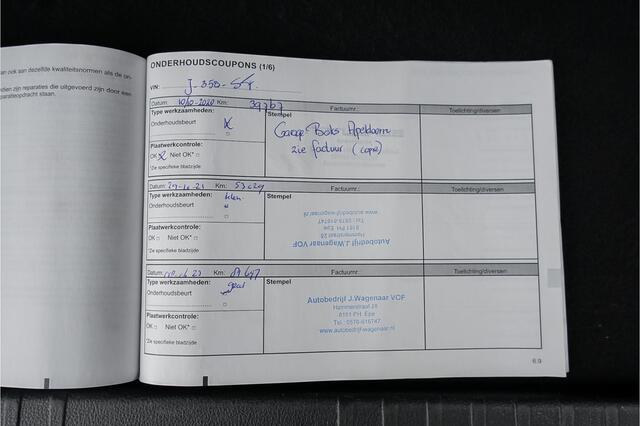 an ook aan dezelfde kwaliteitsnormen als de on-
dien zijn reparaties die uitgevoerd zijn door een
paratieopdracht staan.
ONDERHOUDSCOUPONS (1/6)
VIN:
Datum: Km: 39767 Factuurnr.: Toelichting/diversen
Type werkzaamheden:
Stempel
Onderhoudsbeurt
Garage Boks Apeldoorn
zie factuur (copie)
Plaatwerkcontrole:
OK Niet OK* □
*Zie specifieke bladzijde
Datum: Km: Factuurnr.: Toelichting/diversen
Type werkzaamheden: klein
Stempel
Onderhoudsbeurt
Plaatwerkcontrole:
OK □ Niet OK* □
*Zie specifieke bladzijde
Autobedrijf J.Wagenaar VOF
Hammerstraat 28
8161 PH Epe
Tel.: 0578-616747
www.autobedrijfwagenaar.nl
Datum: Km: Factuurnr.: Toelichting/diversen
Type werkzaamheden: groot
Stempel
Onderhoudsbeurt
Plaatwerkcontrole:
OK □ Niet OK* □
*Zie specifieke bladzijde
Autobedrijf J.Wagenaar VOF
Hammerstraat 28
8161 PH Epe
Tel.: 0578-616747
www.autobedrijfwagenaar.nl
6.9